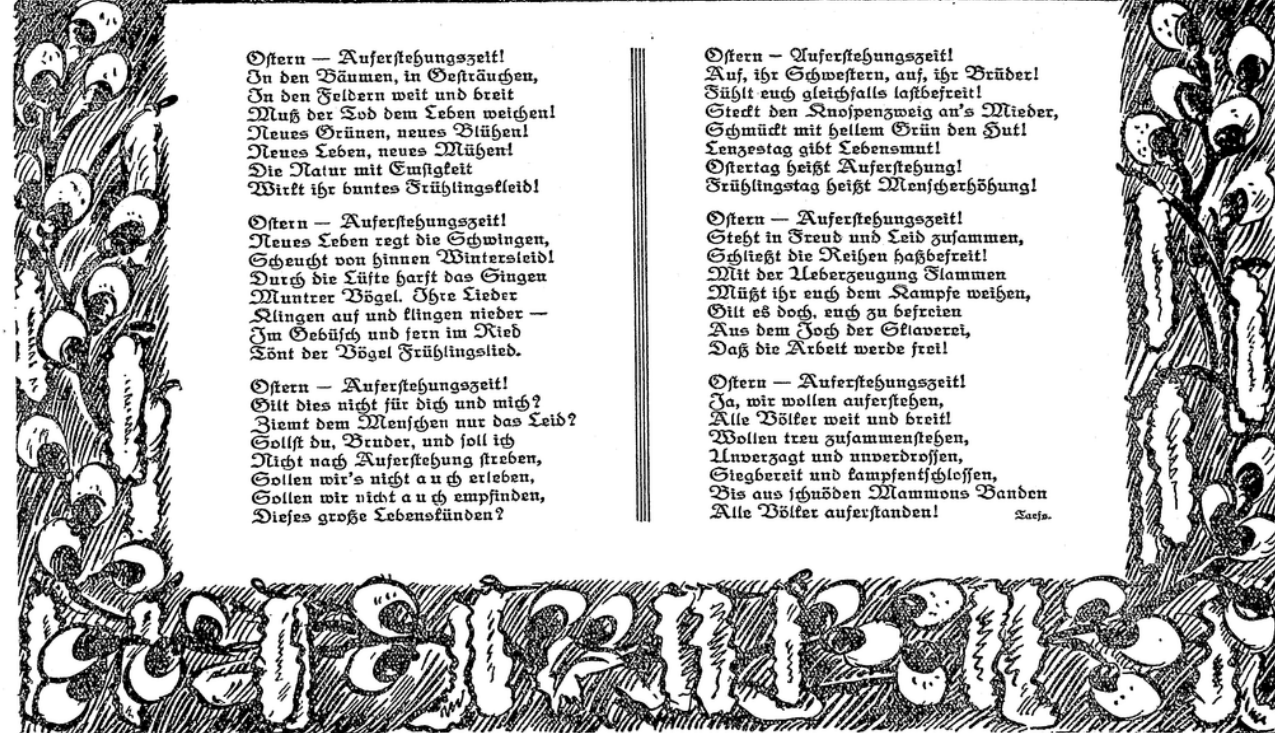 Ostern — Auferstehungszeit!
In den Bäumen, in Gesträuchen,
In den Feldern weit und breit
Muß der Tod dem Leben weichen!
Neues Grünen, neues Blühen!
Neues Leben, neues Mühen!
Die Natur mit Emsigkeit
Wirkt ihr buntes Frühlingskleid!
Ostern — Auferstehungszeit!
Neues Leben regt die Schwingen,
Scheucht von hinnen Wintersleid!
Durch die Lüfte harft das Singen
Muntrer Vögel. Ihre Lieder
Klingen auf und klingen nieder —
Im Gebüsch und fern im Ried
Tönt der Vögel Frühlingslied.
Ostern — Auferstehungszeit!
Gilt dies nicht für dich und mich?
Ziemt dem Menschen nur das Leid?
Sollst du, Bruder, und soll ich
Nicht nach Auferstehung streben,
Sollen wir's nicht auch erleben,
Sollen wir nicht auch empfinden,
Dieses große Lebenskünden?
Ostern – Auferstehungszeit!
Auf, ihr Schwestern, auf, ihr Brüder!
Fühlt euch gleichfalls lastbefreit!
Steckt den Knospenzweig an's Mieder,
Schmückt mit hellem Grün den Hut!
Lenzestag gibt Lebensmut!
Ostertag heißt Auferstehung!
Frühlingstag heißt Menscherhöhung!
Ostern — Auferstehungszeit!
Steht in Freud und Leid zusammen,
Schließt die Reihen haßbefreit!
Mit der Ueberzeugung Flammen
Müßt ihr euch dem Kampfe weihen,
Gilt es doch, euch zu befreien
Aus dem Joch der Sklaverei,
Daß die Arbeit werde frei!
Ostern — Auferstehungszeit!
Ja, wir wollen auferstehen,
Alle Völker weit und breit!
Wollen treu zusammenstehen,
Unverzagt und unverdrossen,
Siegbereit und kampfentschlossen,
Bis aus schnöden Mammons Banden
Alle Völker auferstanden!